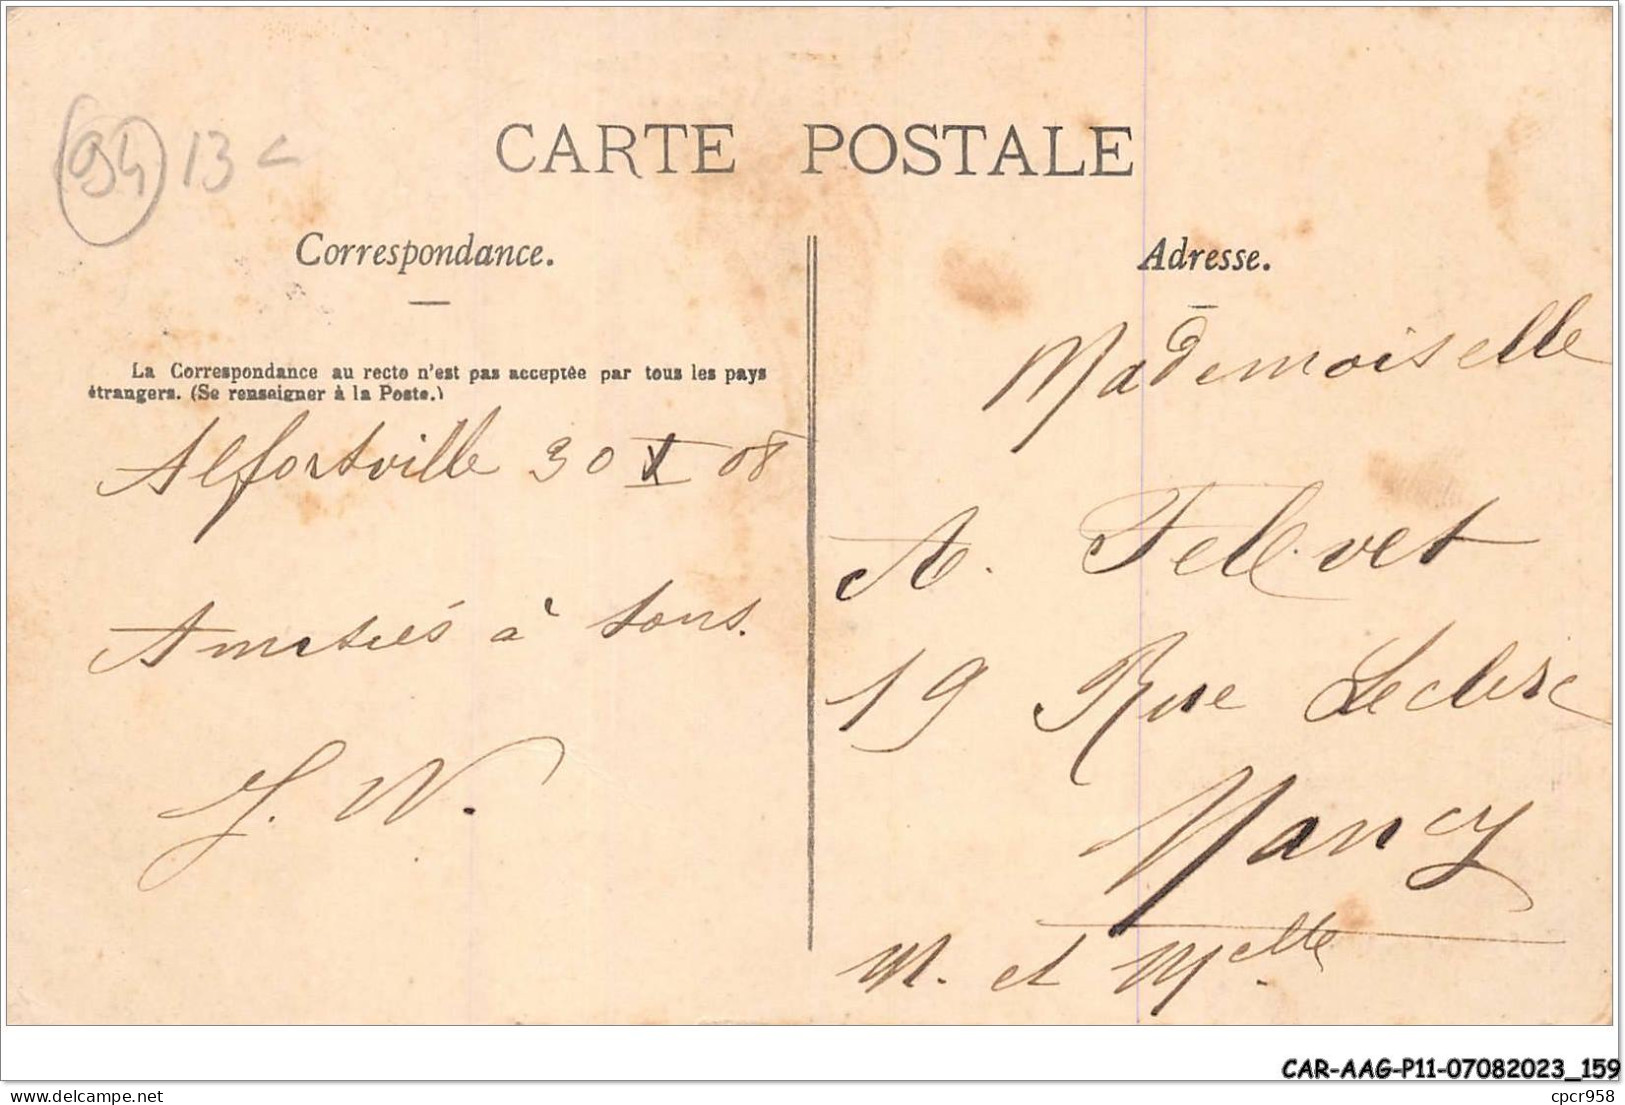 94 13
CARTE POSTALE
Correspondance.
La Correspondance au recto n'est pas acceptée par tous les pays
étrangers. (Se renseigner à la Poste.)
Alfortville 30 X 08
Amitiés à tous.
J. W.
Adresse.
Mademoiselle
A.
19 Rue Leclerc
Nancy
M. et Melle.
CAR-AAG-P11-07082023_159
delcampe.net
cpcr958